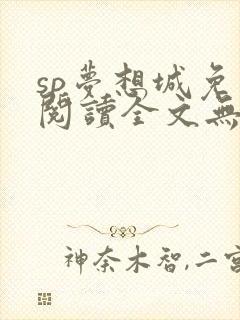 sp夢想城免
閱讀全文無
神奈木智,二宮